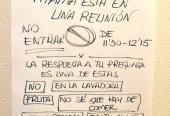 MAMÁ ESTÁ EN
UNA REUNIÓN
NO ENTRAR DE
11:30-12:15
LA RESPUESTA A TU PREGUNTA
ES UNA DE ESTAS:
NO EN LA LAVADORA
FRUTA NO SÉ QUE HAY DE
COMER